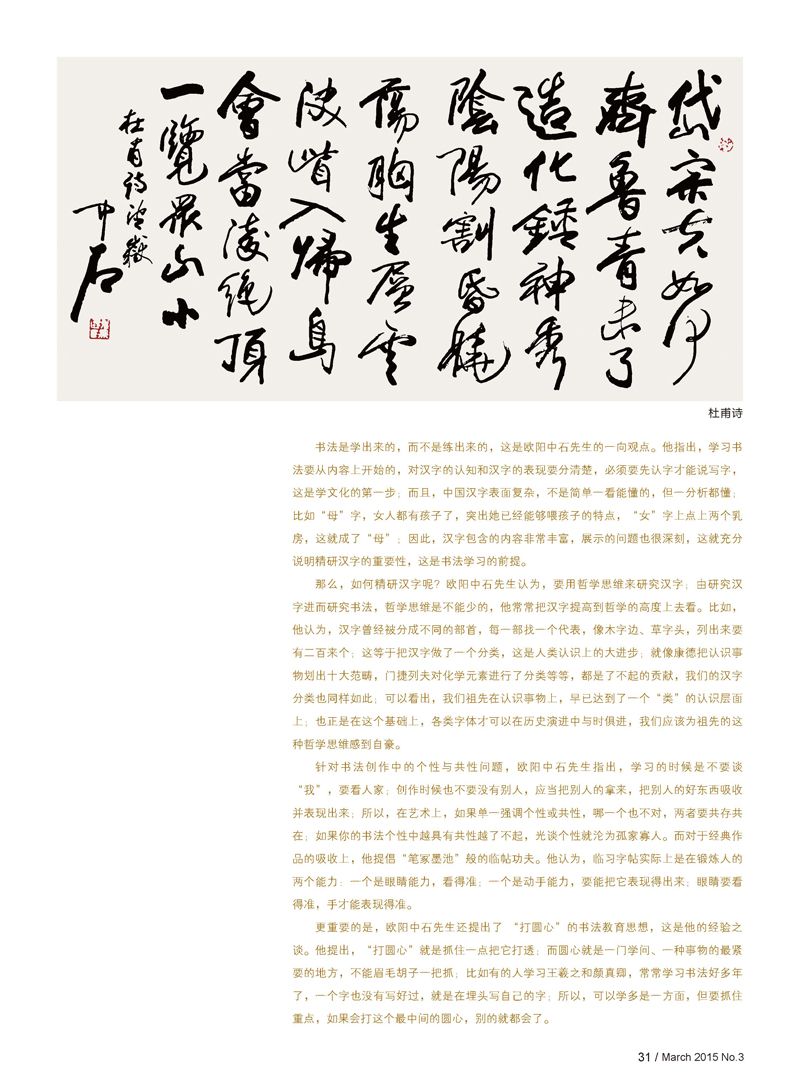 岱宗夫如何
齊魯青未了
造化鍾神秀
陰陽割昏曉
蕩胸生層雲
決眥入歸鳥
會當凌絕頂
一覽眾山小
杜甫詩望嶽
中石
杜甫诗
书法是学出来的，而不是练出来的，这是欧阳中石先生的一向观点。他指出，学习书
法要从内容上开始的，对汉字的认知和汉字的表现要分清楚，必须要先认字才能说写字，
这是学文化的第一步；而且，中国汉字表面复杂，不是简单一看能懂的，但一分析都懂；
比如“母”字，女人都有孩子了，突出她已经能够喂孩子的特点，“女”字上点上两个乳
房，这就成了“母”；因此，汉字包含的内容非常丰富，展示的问题也很深刻，这就充分
说明精研汉字的重要性，这是书法学习的前提。
那么，如何精研汉字呢？欧阳中石先生认为，要用哲学思维来研究汉字；由研究汉
字进而研究书法，哲学思维是不能少的，他常常把汉字提高到哲学的高度上去看。比如，
他认为，汉字曾经被分成不同的部首，每一部找一个代表，像木字边、草字头，列出来要
有二百来个；这等于把汉字做了一个分类，这是人类认识上的大进步；就像康德把认识事
物划出十大范畴，门捷列夫对化学元素进行了分类等等，都是了不起的贡献，我们的汉字
分类也同样如此；可以看出，我们祖先在认识事物上，早已达到了一个“类”的认识层面
上；也正是在这个基础上，各类字体才可以在历史演进中与时俱进，我们应该为祖先的这
种哲学思维感到自豪。
针对书法创作中的个性与共性问题，欧阳中石先生指出，学习的时候是不要谈
“我”，要看人家；创作时候也不要没有别人，应当把别人的拿来，把别人的好东西吸收
并表现出来；所以，在艺术上，如果单一强调个性或共性，哪一个也不对，两者要共存共
在；如果你的书法个性中越具有共性越了不起，光谈个性就沦为孤家寡人。而对于经典作
品的吸收上，他提倡“笔冢墨池”般的临帖功夫。他认为，临习字帖实际上是在锻炼人的
两个能力：一个是眼睛能力，看得准；一个是动手能力，要能把它表现得出来；眼睛要看
得准，手才能表现得准。
更重要的是，欧阳中石先生还提出了 “打圆心”的书法教育思想，这是他的经验之
谈。他提出，“打圆心”就是抓住一点把它打透；而圆心就是一门学问、一种事物的最紧
要的地方，不能眉毛胡子一把抓；比如有的人学习王羲之和颜真卿，常常学习书法好多年
了，一个字也没有写好过，就是在埋头写自己的字；所以，可以学多是一方面，但要抓住
重点，如果会打这个最中间的圆心，别的就都会了。
31 / March 2015 No.3